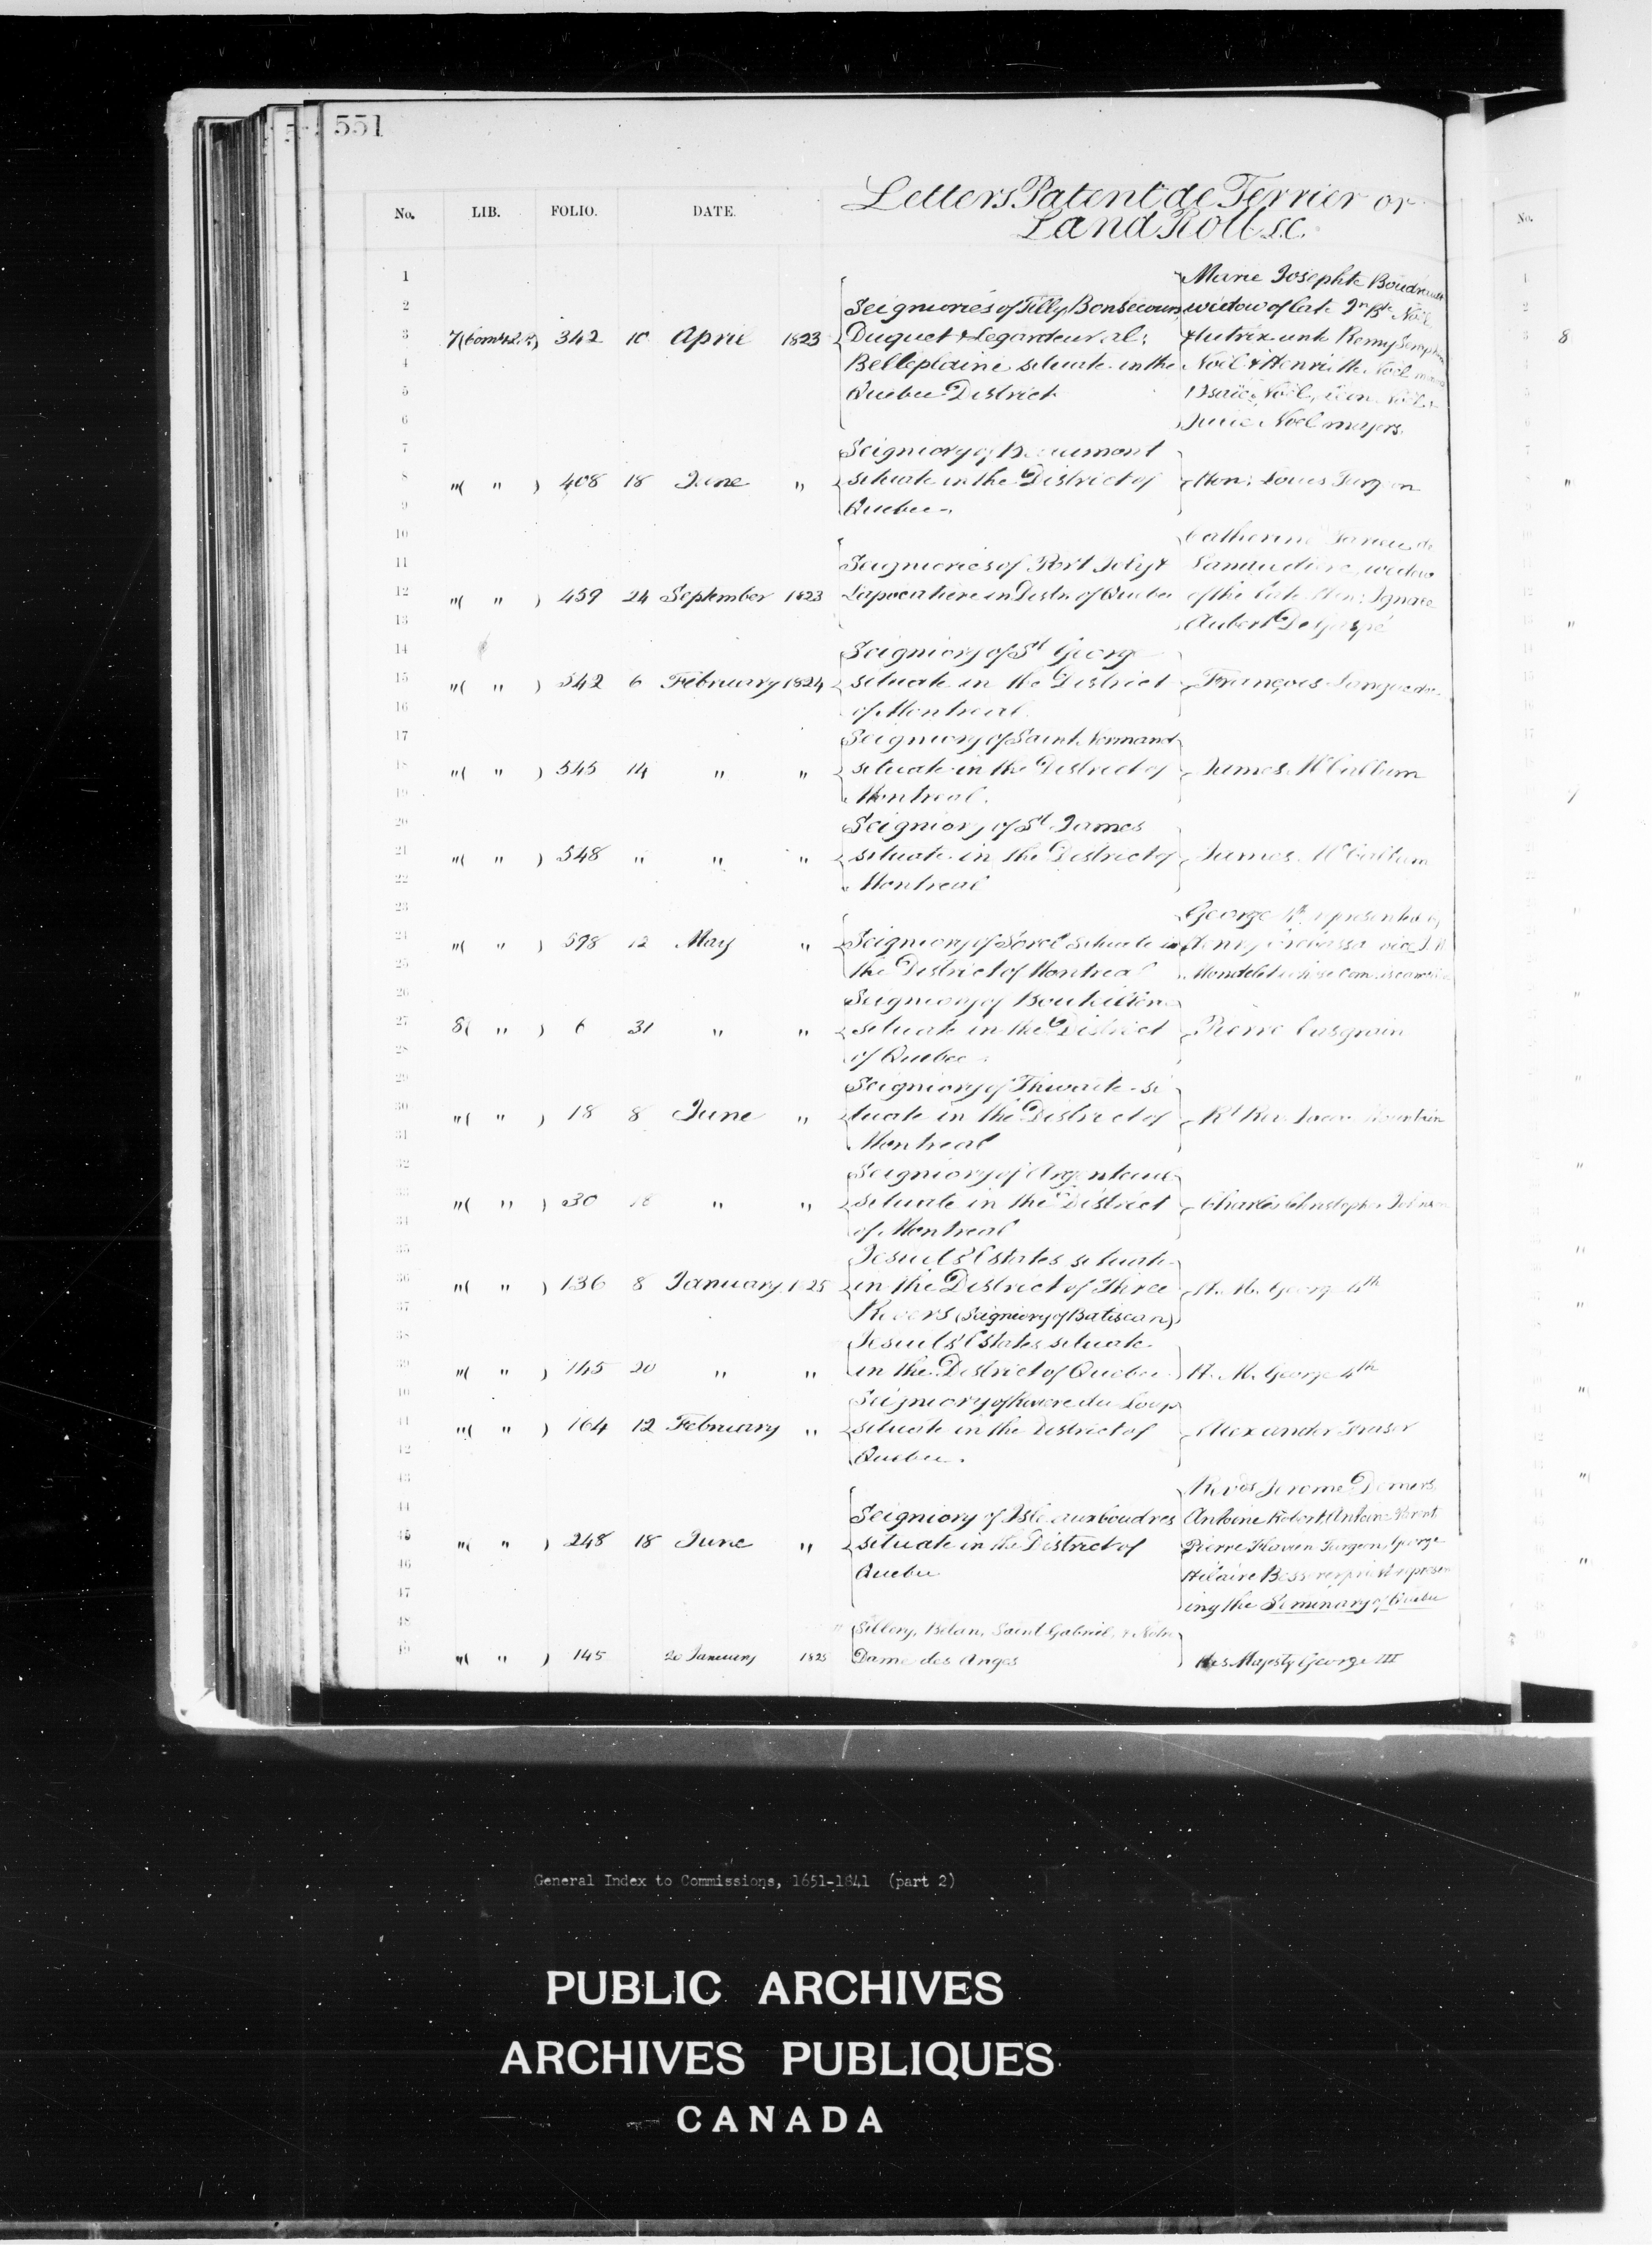 551
Letters Patent de Terrier or
Land Roll L.C.
No. LIB. FOLIO. DATE. No.
1 Marie Josephte Boudreault 1
2 Seigniories of Tilly, Bonsecours, widow of late Jn Bte Noël 2
3 342 10 April 1823 Duquet & Legardeur al: 8
4 Belleplaine situate in the Noël & Henriette Noël
5 Quebec District Noël,
6 Noël majors.
7 Seigniory of Beaumont
8 "( " ) 408 18 June " situate in the District of Hon: Louis Turgeon "
9 Quebec.
10 Catherine
11 Seigniories of Port Joly & widow
12 "( " ) 459 24 September 1823 Lapocatiere in Distr. of Quebec of the late Hon: Ignace
13 Aubert DeGaspé "
14 Seigniory of St Georg
15 "( " ) 542 6 February 1824 situate in the District François Languedoc
16 of Montreal.
17 Seigniory of Saint Normand
18 "( " ) 545 14 " " situate in the District of James McCallum
19 Montreal.
20 Seigniory of St James
21 "( " ) 548 " " " situate in the District of James McCallum
22 Montreal
23 George 4th represented by
24 "( " ) 598 12 May " Seigniory of Sorel situate in Henry Crebassa
25 the District of Montreal Mondelet
26 Seigniory of
27 8( " ) 6 31 " " situate in the District Pierre Casgrain
28 of Quebec
29 Seigniory of Thwaite si
30 "( " ) 18 8 June " tuate in the District of Rt Rev. Jacob Mountain
31 Montreal
32 Seigniory of Argenteuil
33 "( " ) 30 18 " " situate in the District Charles Christopher Johnson
34 of Montreal
35 Jesuits' Estates situate
36 "( " ) 136 8 January 1825 in the District of Three H. M. George 4th
37 Rivers (Seigniory of Batiscan)
38 Jesuits' Estates situate
39 "( " ) 145 20 " " in the District of Quebec H. M. George 4th
40 Seigniory of Riviere du Loup
41 "( " ) 164 12 February " situate in the District of Alexander Fraser
42 Quebec.
43 Revds Jerome Demers,
44 Seigniory of Isle aux Coudres Antoine Robert, Antoine Parent
45 "( " ) 248 18 June " situate in the District of Pierre Flavien Turgeon, George
46 Quebec Hilaire Besserer priests represent
47 ing the Seminary of Quebec
48 Sillery, Belair, Saint Gabriel, & Notre
49 "( " ) 145 20 January 1825 Dame des Anges His Majesty George III
General Index to Commissions, 1651-1841 (part 2)
PUBLIC ARCHIVES
ARCHIVES PUBLIQUES
CANADA